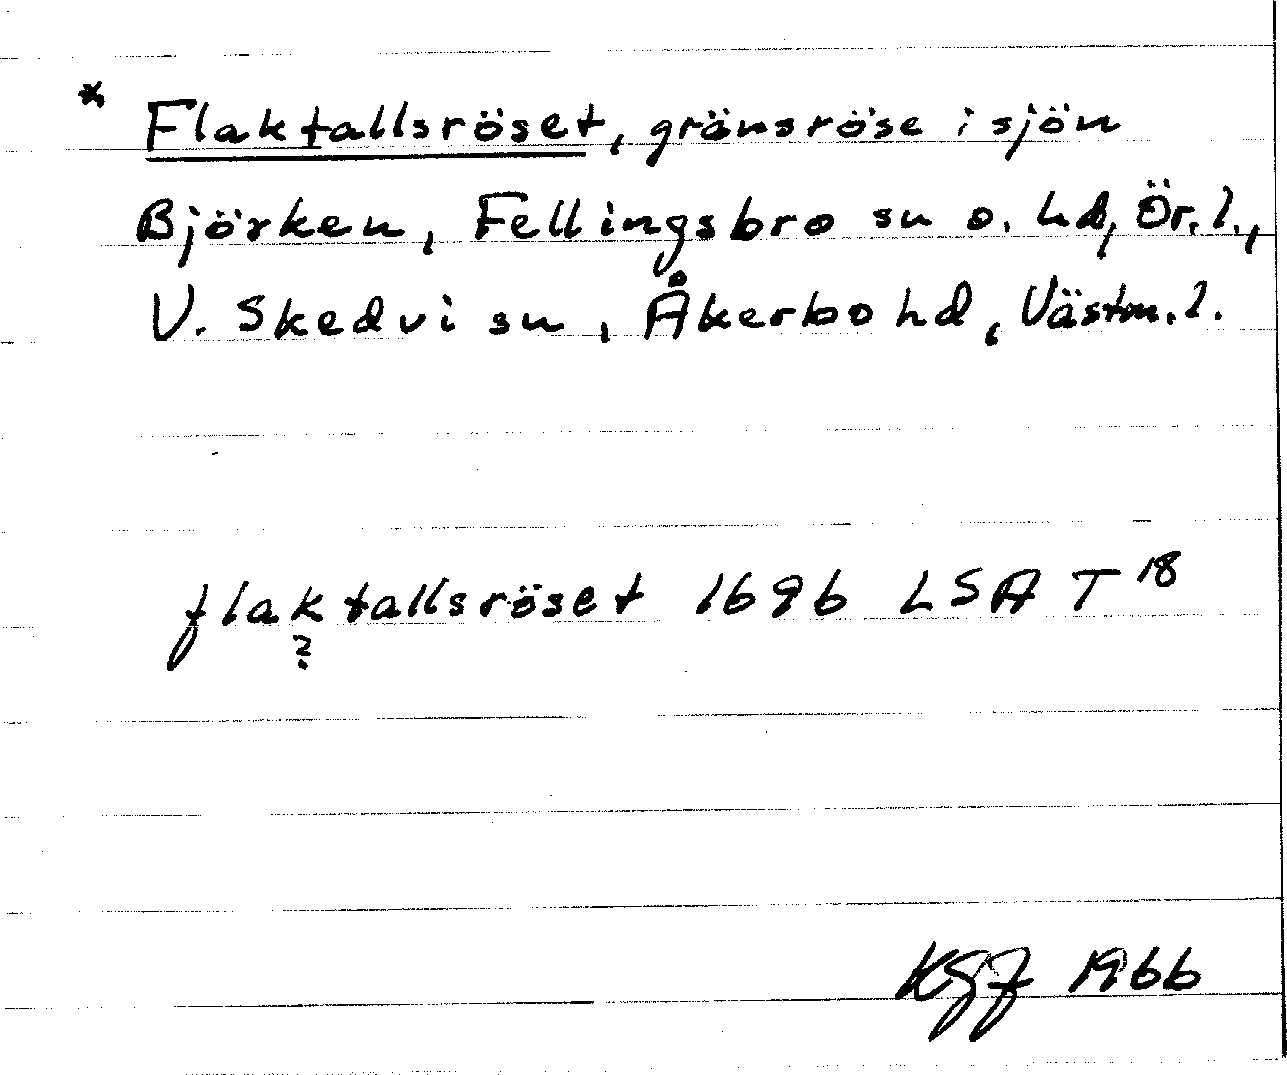 * Flaktallsröset, gränsröse i sjön
Björken, Fellingsbro sn o. hd, Ör. l.,
V. Skedvi sn, Åkerbo hd, Västm. l.
flaktallsröset 1696 LSA T 18
?
1966